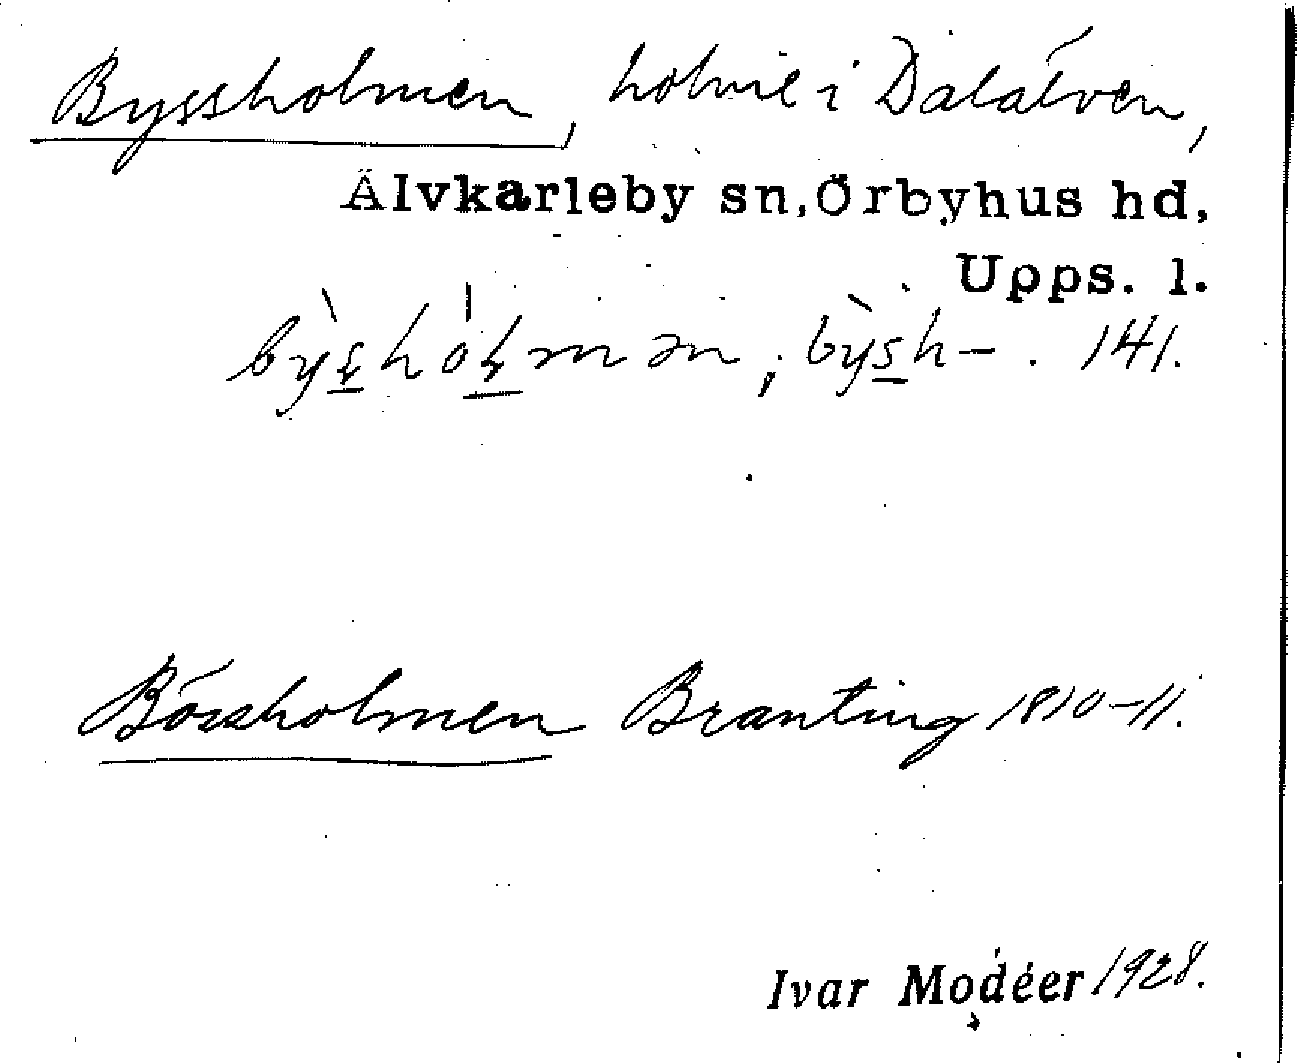 Byssholmen, holme i Dalälven,
Älvkarleby sn, Örbyhus hd,
Upps. l.
141.
Bössholmen Branting 1810-11.
Ivar Modéer 1928.